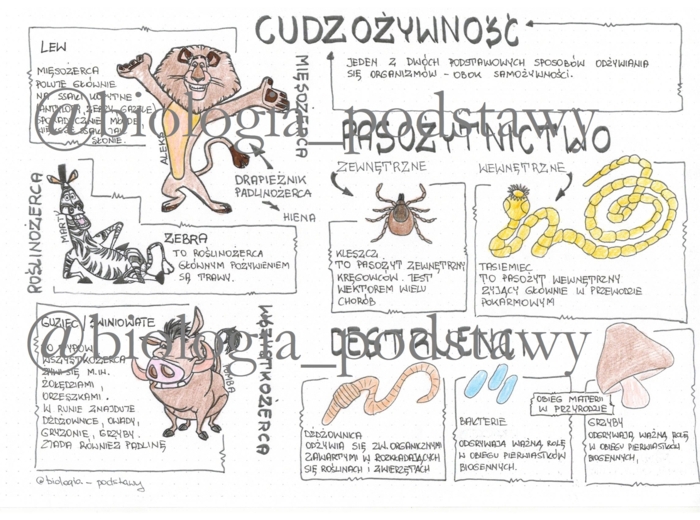 CUDZOŻYWNOŚĆ
JEDEN Z DWÓCH PODSTAWOWYCH SPOSOBÓW ODŻYWIANIA
SIĘ ORGANIZMÓW - OBOK SAMOŻYWNOŚCI.
LEW
MIĘSOŻERCA
POLUJE GŁÓWNIE
NA SSAKI KOPYTNE
SŁONIE.
ALEKS
MIĘSOŻERCA
DRAPIEŻNIK
PADLINOŻERCA
HIENA
@biologia_podstawy
ROŚLINOŻERCA
MARTY
ZEBRA
TO ROŚLINOŻERCA
GŁÓWNYM POŻYWIENIEM
SĄ TRAWY.
PASOŻYTNICTWO
ZEWNĘTRZNE
WEWNĘTRZNE
KLESZCZ
TO PASOŻYT ZEWNĘTRZNY
KRĘGOWCÓW. JEST
WEKTOREM WIELU
CHORÓB
TASIEMIEC
TO PASOŻYT WEWNĘTRZNY
ŻYJĄCY GŁÓWNIE W PRZEWODZIE
POKARMOWYM
GUZIEC
WSZYSTKOŻERCA
ŻYWI SIĘ M.IN.
ŻOŁĘDZIAMI,
ORZESZKAMI.
W RUNIE ZNAJDUJE
DŻDŻOWNICE, OWADY,
GRYZONIE, GRZYBY.
ZJADA RÓWNIEŻ PADLINĘ
WSZYSTKOŻERCA
@biologia_podstawy
DESTRUENCI
DŻDŻOWNICA
ODŻYWIA SIĘ ZW. ORGANICZNYMI
ZAWARTYMI W ROZKŁADAJĄCYCH
SIĘ ROŚLINACH I ZWIERZĘTACH
BAKTERIE
ODGRYWAJĄ WAŻNĄ ROLĘ
W OBIEGU PIERWIASTKÓW
BIOGENNYCH.
OBIEG MATERII
W PRZYRODZIE
GRZYBY
ODGRYWAJĄ WAŻNĄ ROLĘ
W OBIEGU PIERWIASTKÓW
BIOGENNYCH,
@biologia_podstawy